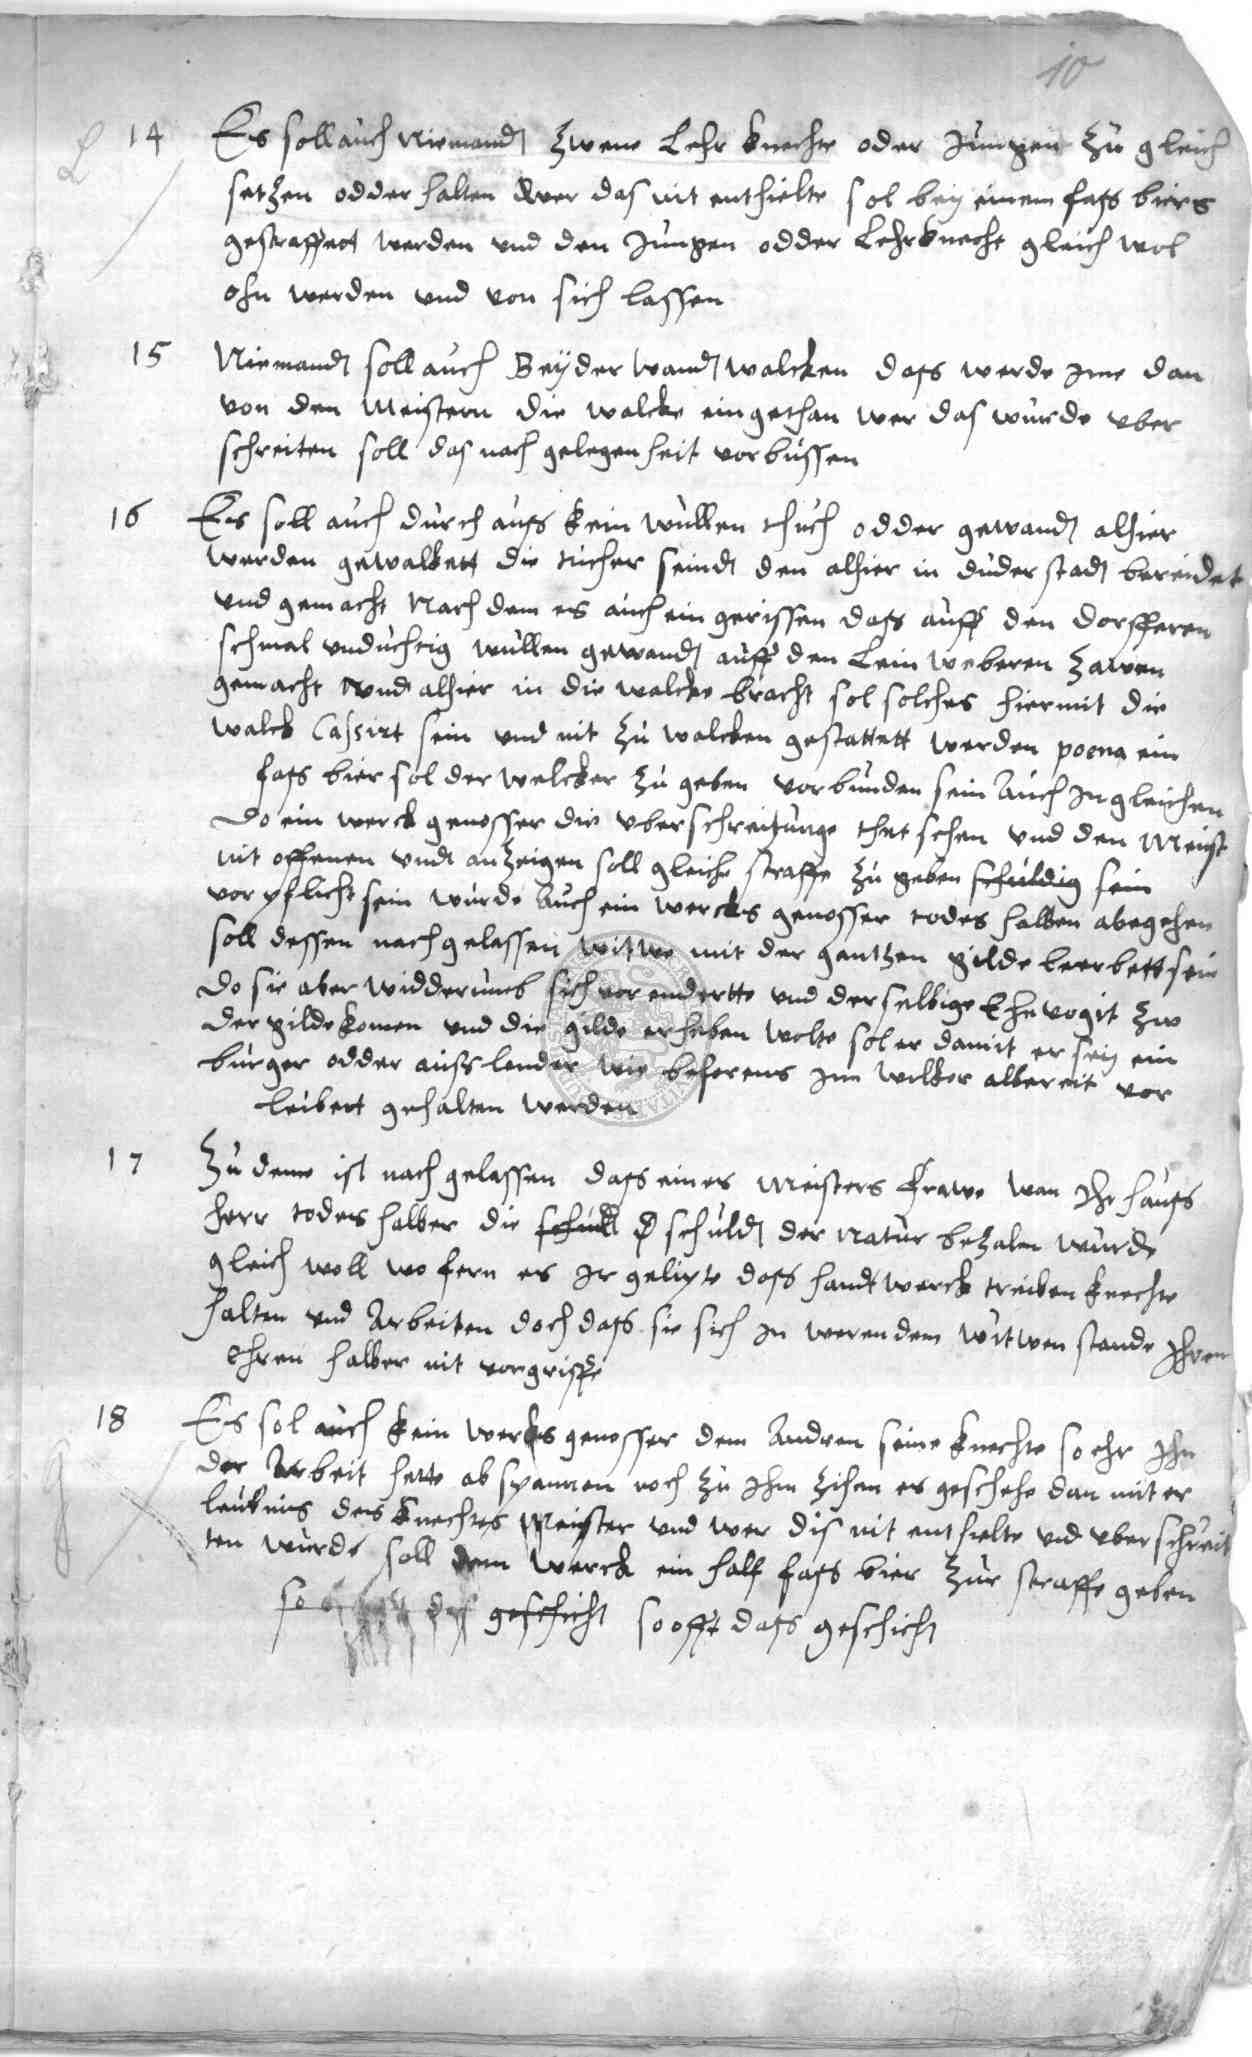 10
14 Es soll auch Niemandt zwene Lehr knechte oder Jungen zu gleich
setzen odder halten Wer das nit enthielte sol bey einem fass biers
gestraffet werden und den Jungen odder Lehrknecht gleich wol
ohn werden und von sich lassen
15 Niemandt soll auch Beyderwandt walcken dass werde ime dan
von den Meistern die walcke eingethan wer das wurde uber
schreiten soll das nach gelegenheit vorbussen
16 Es soll auch durch auss kein wullen thuch odder gewandt alhier
werden gewalkett die tucher seindt den alhier in duderstadt bereidet
und gemacht Nach dem es auch eingerissen dass auff den dorfferen
schmal unduchtig wullen gewandt auff den Leinweberen zawen
gemacht und alhier in die walcke bracht sol solches hiermit die
walck Cassirt sein und nit zu walcken gestattett werden poena ein
fass bier sol der welcker zu geben vorbunden sein Auch In gleichen
do ein werckgenosser die uberschreitunge thet sehen und den Meist
nit offenen undt anzeigen soll gleiche straffe zu geben schuldig sein
vorpflicht sein wurde Auch ein wercks genosser todes halben abegehen
soll dessen nachgelassen witwe mit der gantzen gilde beerbett sein
do sie aber widderumb sich vorendertte und derselbige Ehevogit zw
der gilde komen und die gilde erheben wolte sol er damit er sey ein
burger odderausslender wie beforens im wilkor albereit vor
leibert gehalten werden
17 Zu deme ist nachgelassen dass eines Meisters Frawe wan Ihr hauss
herr todes halber die schuldt schuldt der Natur bezalen wurde
gleich woll wo fern es ir geliepte dass handtwerck treiben knechte
halten und Arbeiten doch dass sie sich in werendem witwen stande Ihren
Ehren halber nit vorgriffe
18 Es sol auch kein wercks genosser dem Andren seine knechte so ehr Ihn
der Arbeit hette abspannen noch zu Ihm zihen es geschehe dan mit er
leubnis des knechtes Meister und wer dis nit enthielte und uberschreit
ten wurde soll dem werck ein half fass bier zur straffe geben
so das geschicht so offt dass geschicht